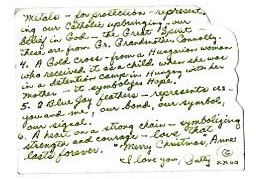 Metals - for protection - represent
ing our Catholic upbringing, our
belief in God - the Great Spirit -
these are from Gr. Grandmother Connolly.
4. A Gold cross - from a Hungarian woman
who received it as a child when she was
in a detention camp in Hungry with her
mother - it symbolizes Hope.
5. 2 Blue Jay feathers - represents us -
you and me, our bond, our symbol,
our signal.
6. A heart on a strong chain - symbolizing
strength and courage - love that
lasts forever. "Merry Christmas, Anne"
I love you, Patty
xxoo